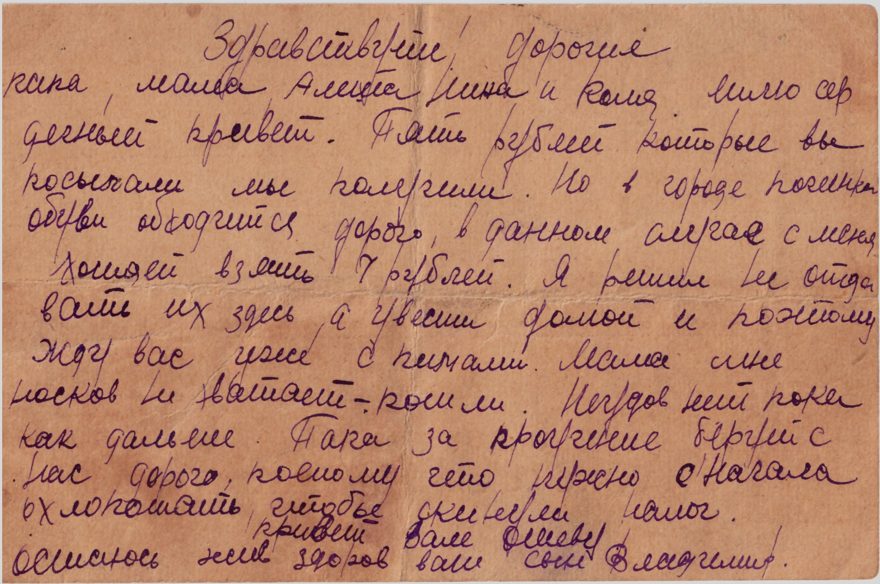 Здравствути, дорогия
папа, мама, Алита Нина и Коля, шлю сер
дечный привет. Пять рублей которые вы
посылали мы получили. Но в городе починка
обуви обходится дорого, в данном случае с меня
хотят взять 7 рублей. Я решил не отда
вать их здесь, а увести домой и поэтому
жду вас уже с пимами. Мама мне
носков не хватает - пошли. нит пока
как дальше. Пака за прочение берут с
нас дорого, поетому что нужно сначала
охлопотать, чтобы скинули налог.
привет Вале
остаюсь жив здоров ваш сын Владимир.